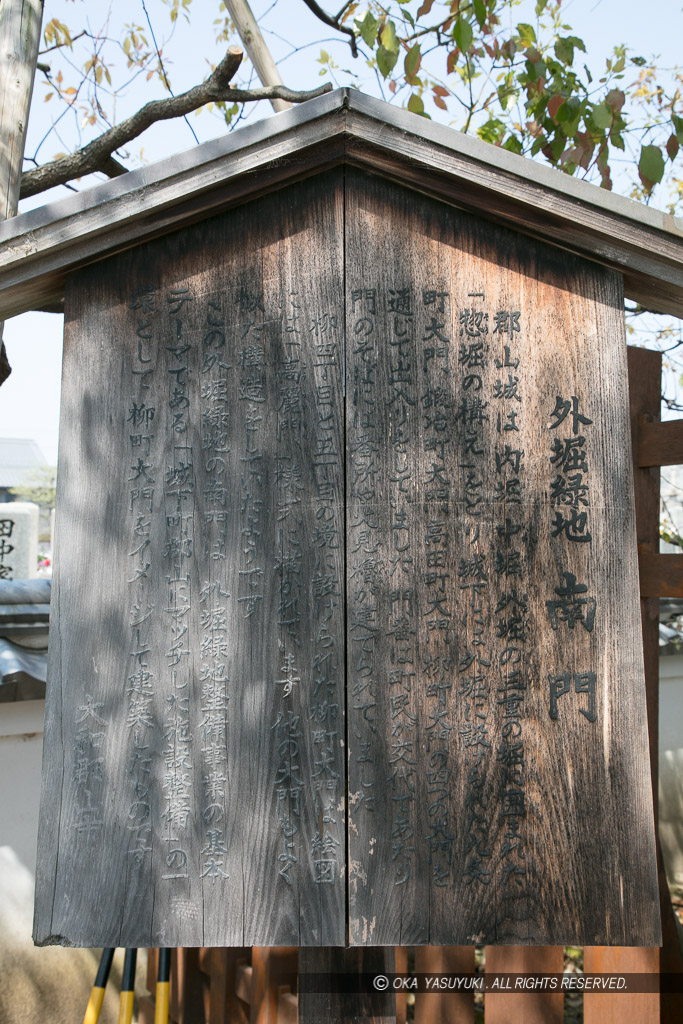 外堀緑地 南門
郡山城は内堀、中堀、外堀の三重の堀に囲まれた
「惣堀の構え」をとり、城下には外堀に設けられた九条
町大門、鍛冶町大門、高田町大門、柳町大門の四つの大門を
通じて出入りをしていました。門番は町民が交代であたり
門のそばには番所や火見櫓が建てられていました。
柳四丁目と五丁目の境に設けられた柳町大門は、絵図
には「高麗門」様式に描かれています。他の大門もよく
似た構造をしていたようです。
この外堀緑地の南門は、外堀緑地整備事業の基本
テーマである「城下町郡山にマッチした施設整備」の一
環として、柳町大門をイメージして建築したものです。
大和郡山市
田中家
© OKA YASUYUKI. ALL RIGHTS RESERVED.